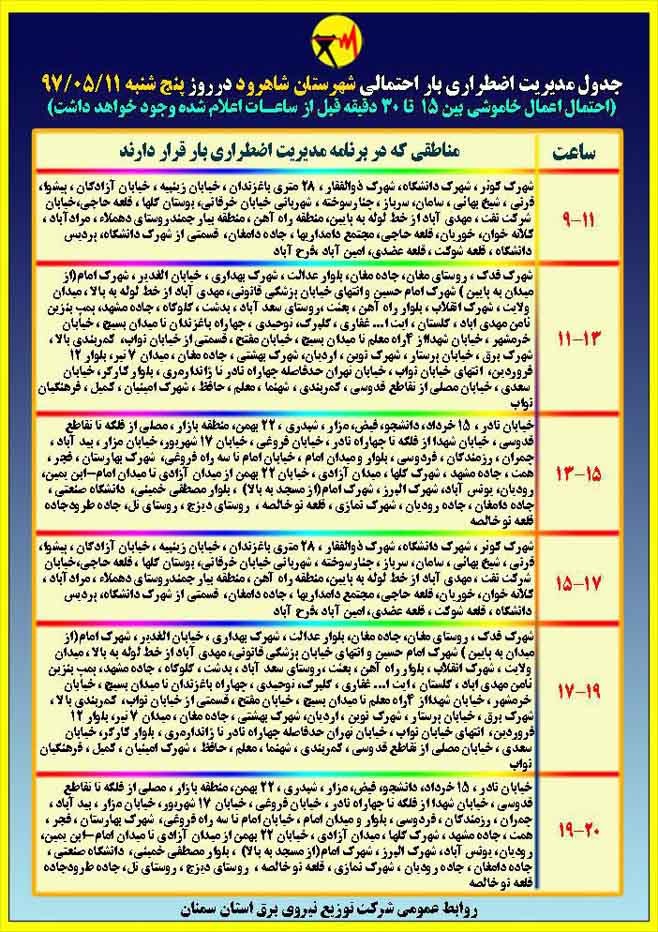 جدول مدیریت اضطراری بار احتمالی شهرستان شاهرود در روز پنج شنبه ۹۷/۰۵/۱۱
(احتمال اعمال خاموشی بین ۱۵ تا ۳۰ دقیقه قبل از ساعات اعلام شده وجود خواهد داشت)
ساعت
مناطقی که در برنامه مدیریت اضطراری بار قرار دارند
۹-۱۱
شهرک کوثر ، شهرک دانشگاه، شهرک ذوالفقار ، ۲۸ متری باغزندان ، خیابان زینبیه ، خیابان آزادگان ، پیشوا،
قرنی ، شیخ بهائی ، سامان، سرباز ، چنارسوخته ، شهربانی خیابان خرقانی، بوستان گلها ، قلعه حاجی،خیابان
شرکت نفت ، مهدی آباد از خط لوله به پایین،منطقه راه آهن ، منطقه بیار جمندروستای دهملاء ، مرادآباد ،
کلاته خوان، خوریان، قلعه حاجی، مجتمع دامداریها ، جاده دامغان، قسمتی از شهرک دانشگاه، پردیس
دانشگاه ، قلعه شوکت ، قلعه عضدی، امین آباد ،فرح آباد
۱۱-۱۳
شهرک فدک ، روستای مغان، جاده مغان، بلوار عدالت ، شهرک بهداری ، خیابان الغدیر ، شهرک امام(از
میدان به پایین ) شهرک امام حسین و انتهای خیابان پزشکی قانونی، مهدی آباد از خط لوله به بالا، ، میدان
ولایت ، شهرک انقلاب ، بلوار راه آهن ، بعثت ،روستای سعد آباد ، بدشت ، کلوکاه ، جاده مشهد، پمپ بنزین
ثامن مهدی اباد ، گلستان ، ایت ا... غفاری ، گلبرگ، توحیدی ، چهاراه باغزندان تا میدان بسیج ، خیابان
خرمشهر ، خیابان شهدااز ۴راه معلم تا میدان بسیج ، خیابان مفتح ، قسمتی از خیابان نواب، کمربندی بالا ،
شهرک برق ، خیابان پرستار ، شهرک نوین ، اردیان، شهرک بهشتی ، جاده مغان ، میدان ۷ تیر، بلوار 12
فروردین، انتهای خیابان نواب ، خیابان تهران حدفاصله چهاراه نادر تا ژاندارمری ، بلوار کارگر، خیابان
سعدی ، خیابان مصلی از تقاطع قدوسی ، کمربندی ، شهنما ، معلم ، حافظ ، شهرک امینیان ، کمیل ، فرهنگیان
نواب
۱۳-۱۵
خیابان نادر ، ۱۵ خرداد، دانشجو، فیض، مزار ، شبدری ، ۲۲ بهمن، منطقه بازار ، مصلی از فلکه تا تقاطع
قدوسی ، خیابان شهدا از فلکه تا چهاراه نادر ، خیابان فروغی ، خیابان ۱۷ شهریور، خیابان مزار ، بید آباد ،
چمران ، رزمندگان ، فردوسی ، بلوار و میدان امام ، خیابان امام تا سه راه فروغی، شهرک بهارستان ، فجر ،
همت ، جاده مشهد ، شهرک گلها ، میدان آزادی ، خیابان ۲۲ بهمن از میدان آزادی تا میدان امام-ابن یمین،
رودیان، یونس آباد، شهرک البرز ، شهرک امام(از مسجد به بالا) ، بلوار مصطفی خمینی، دانشگاه صنعتی ،
جاده دامغان ، جاده رودیان ، شهرک نمازی ، قلعه نو خالصه ، روستای دیزج ، روستای تل، جاده طرودجاده
قلعه نو خالصه
۱۵-۱۷
شهرک کوثر ، شهرک دانشگاه، شهرک ذوالفقار ، ۲۸ متری باغزندان ، خیابان زینبیه ، خیابان آزادگان ، پیشوا،
قرنی ، شیخ بهائی ، سامان، سرباز ، چنارسوخته ، شهربانی خیابان خرقانی، بوستان گلها ، قلعه حاجی،خیابان
شرکت نفت ، مهدی آباد از خط لوله به پایین،منطقه راه آهن ، منطقه بیار جمندروستای دهملاء ، مرادآباد ،
کلاته خوان، خوریان، قلعه حاجی، مجتمع دامداریها ، جاده دامغان، قسمتی از شهرک دانشگاه، پردیس
دانشگاه ، قلعه شوکت ، قلعه عضدی، امین آباد ،فرح آباد
۱۷-۱۹
شهرک فدک ، روستای مغان، جاده مغان، بلوار عدالت ، شهرک بهداری ، خیابان الغدیر ، شهرک امام(از
میدان به پایین ) شهرک امام حسین و انتهای خیابان پزشکی قانونی، مهدی آباد از خط لوله به بالا، ، میدان
ولایت ، شهرک انقلاب ، بلوار راه آهن ، بعثت ،روستای سعد آباد ، بدشت ، کلوکاه ، جاده مشهد، پمپ بنزین
ثامن مهدی اباد ، گلستان ، ایت ا... غفاری ، گلبرگ، توحیدی ، چهاراه باغزندان تا میدان بسیج ، خیابان
خرمشهر ، خیابان شهدااز ۴راه معلم تا میدان بسیج ، خیابان مفتح ، قسمتی از خیابان نواب، کمربندی بالا ،
شهرک برق ، خیابان پرستار ، شهرک نوین ، اردیان، شهرک بهشتی ، جاده مغان ، میدان ۷ تیر، بلوار 12
فروردین، انتهای خیابان نواب ، خیابان تهران حدفاصله چهاراه نادر تا ژاندارمری ، بلوار کارگر، خیابان
سعدی ، خیابان مصلی از تقاطع قدوسی ، کمربندی ، شهنما ، معلم ، حافظ ، شهرک امینیان ، کمیل ، فرهنگیان
نواب
۱۹-۲۰
خیابان نادر ، ۱۵ خرداد، دانشجو، فیض، مزار ، شبدری ، ۲۲ بهمن، منطقه بازار ، مصلی از فلکه تا تقاطع
قدوسی ، خیابان شهدا از فلکه تا چهاراه نادر ، خیابان فروغی ، خیابان ۱۷ شهریور، خیابان مزار ، بید آباد ،
چمران ، رزمندگان ، فردوسی ، بلوار و میدان امام ، خیابان امام تا سه راه فروغی، شهرک بهارستان ، فجر ،
همت ، جاده مشهد ، شهرک گلها ، میدان آزادی ، خیابان ۲۲ بهمن از میدان آزادی تا میدان امام-ابن یمین،
رودیان، یونس آباد، شهرک البرز ، شهرک امام(از مسجد به بالا) ، بلوار مصطفی خمینی، دانشگاه صنعتی ،
جاده دامغان ، جاده رودیان ، شهرک نمازی ، قلعه نو خالصه ، روستای دیزج ، روستای تل، جاده طرودجاده
قلعه نو خالصه
روابط عمومی شرکت توزیع نیروی برق استان سمنان